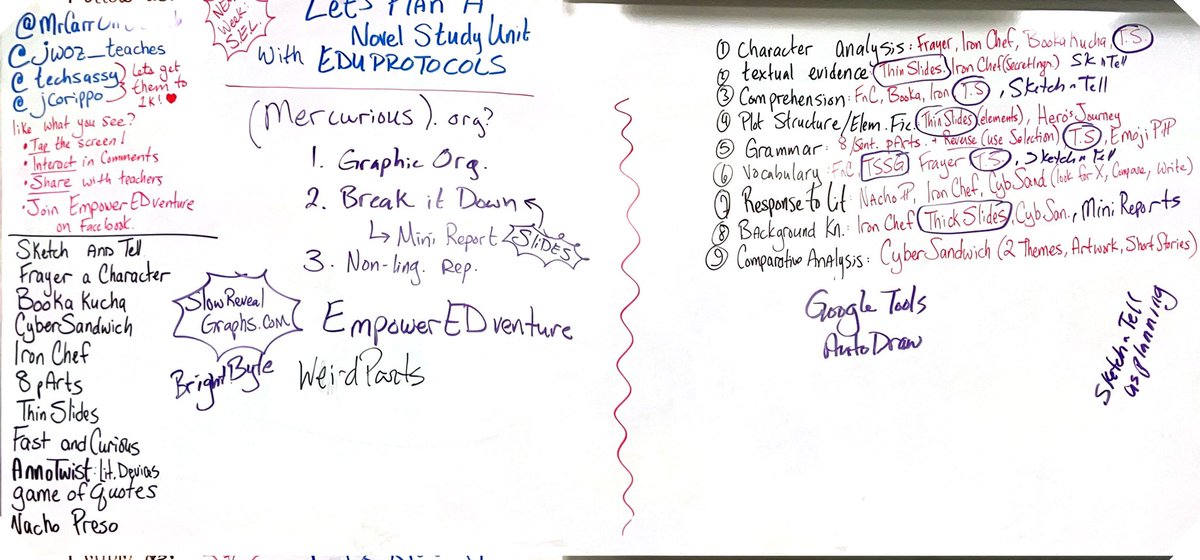 @MrCarr
@jwoz_teaches
@techsassy
@jcorippo
Lets get
them to
1K! ♥
like what you see?
• Tap the screen!
• Interact in Comments
• Share with teachers
• Join EmpowerEDventure
on Facebook.
Sketch And Tell
Frayer a Character
Booka Kucha
CyberSandwich
Iron Chef
8 pArts
Thin Slides
Fast and Curious
AnnoTwist: Lit. Devices
game of Quotes
Nacho Preso
Week:
SEL
Let's Plan A
Novel Study Unit
With EDUPROTOCOLS
(Mercurious). org?
1. Graphic Org.
2. Break it Down
↳ Mini Report
SLIDES
3. Non-ling. Rep.
SlowReveal
Graphs.com
EmpowerEDventure
BrightByte
Weird Parts
① Character analysis: Frayer, Iron Chef, Booka Kucha, T.S.
② textual evidence: Thin Slides, Iron Chef (Secret Ingr.) Sk n Tell
③ Comprehension: FnC, Booka, Iron T.S, Sketch n Tell
④ Plot Structure/Elem. Fic. Thin Slides (elements), Hero's Journey
⑤ Grammar: 8/Sent. pArts. + Reverse (use Selection) T.S, Emoji PP
⑥ Vocabulary: FnC, TSSG Frayer T.S., Sketch n Tell
⑦ Response to Lit: Nacho P, Iron Chef, Cyb Sand (look for X, Compare, Write)
⑧ Background Kn.: Iron Chef Thick Slides, Cyb San., Mini Reports
⑨ Comparative Analysis: CyberSandwich (2 Themes, Artwork, Short Stories)
Google Tools
AutoDraw
Sketch n Tell
as planning